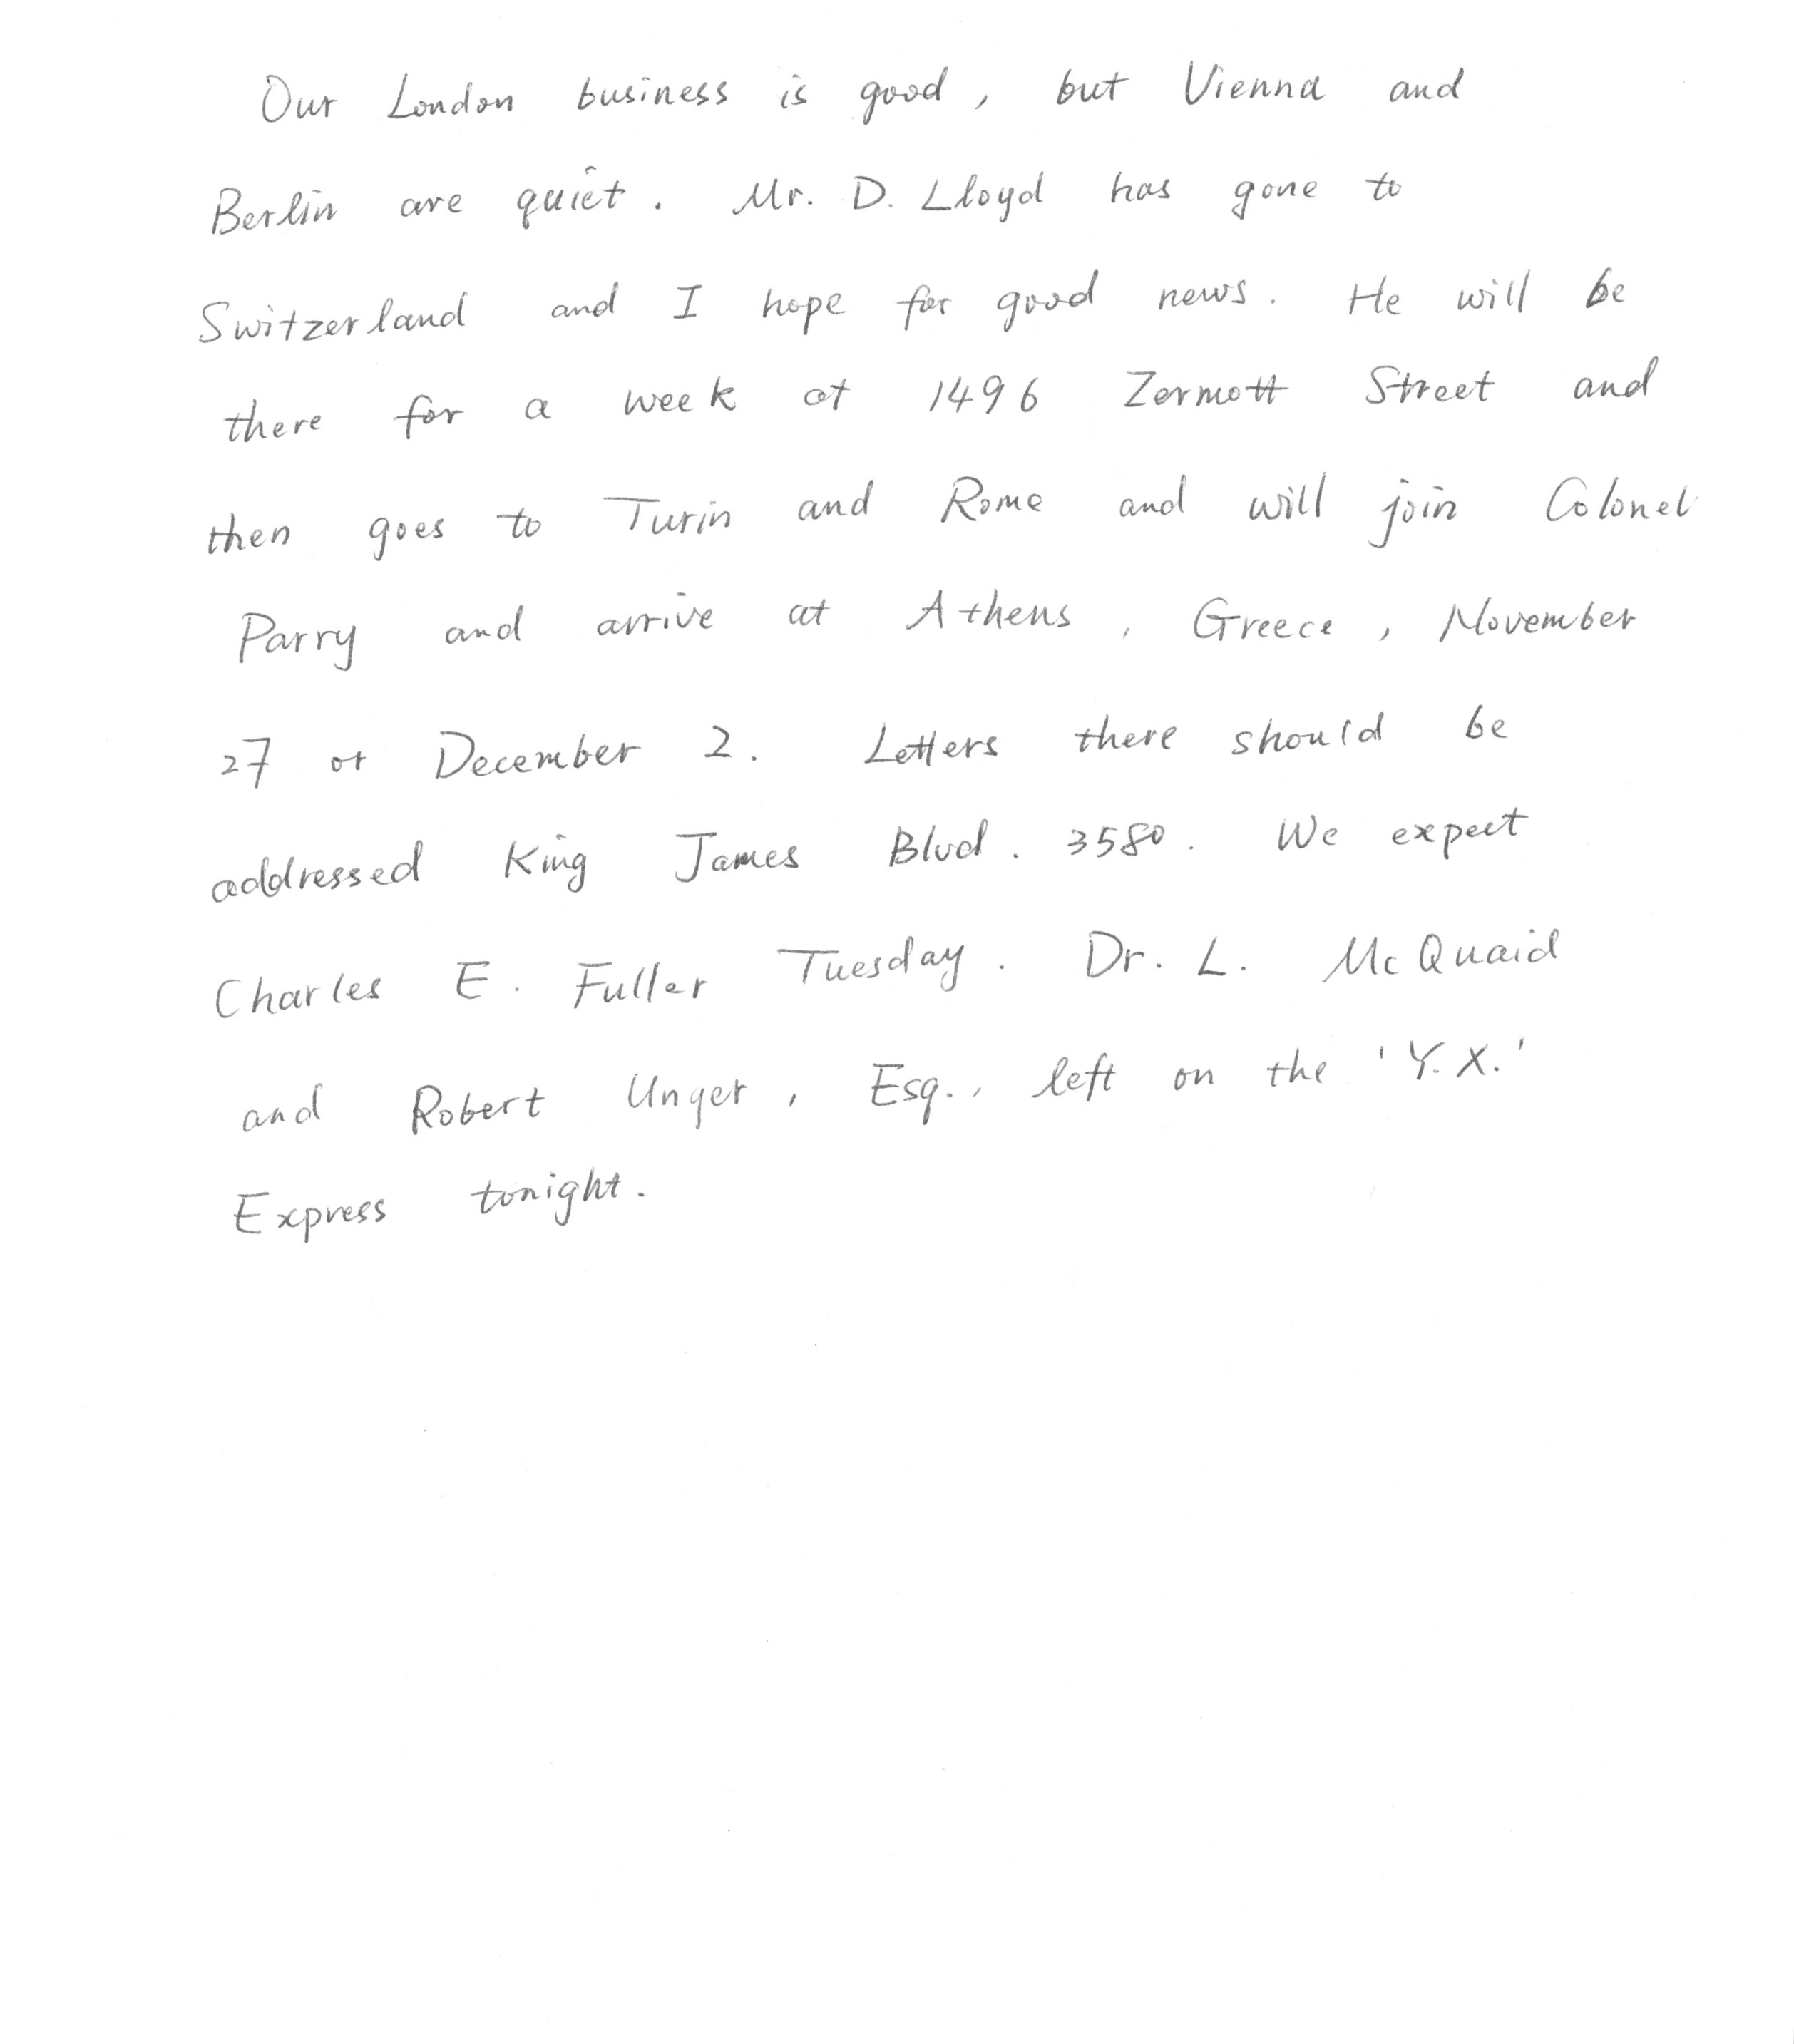 Our London business is good, but Vienna and
Berlin are quiet. Mr. D. Lloyd has gone to
Switzerland and I hope for good news. He will be
there for a week at 1496 Zermott Street and
then goes to Turin and Rome and will join Colonel
Parry and arrive at Athens, Greece, November
27 or December 2. Letters there should be
addressed King James Blvd. 3580. We expect
Charles E. Fuller Tuesday. Dr. L. McQuaid
and Robert Unger, Esq., left on the 'Y.X.'
Express tonight.